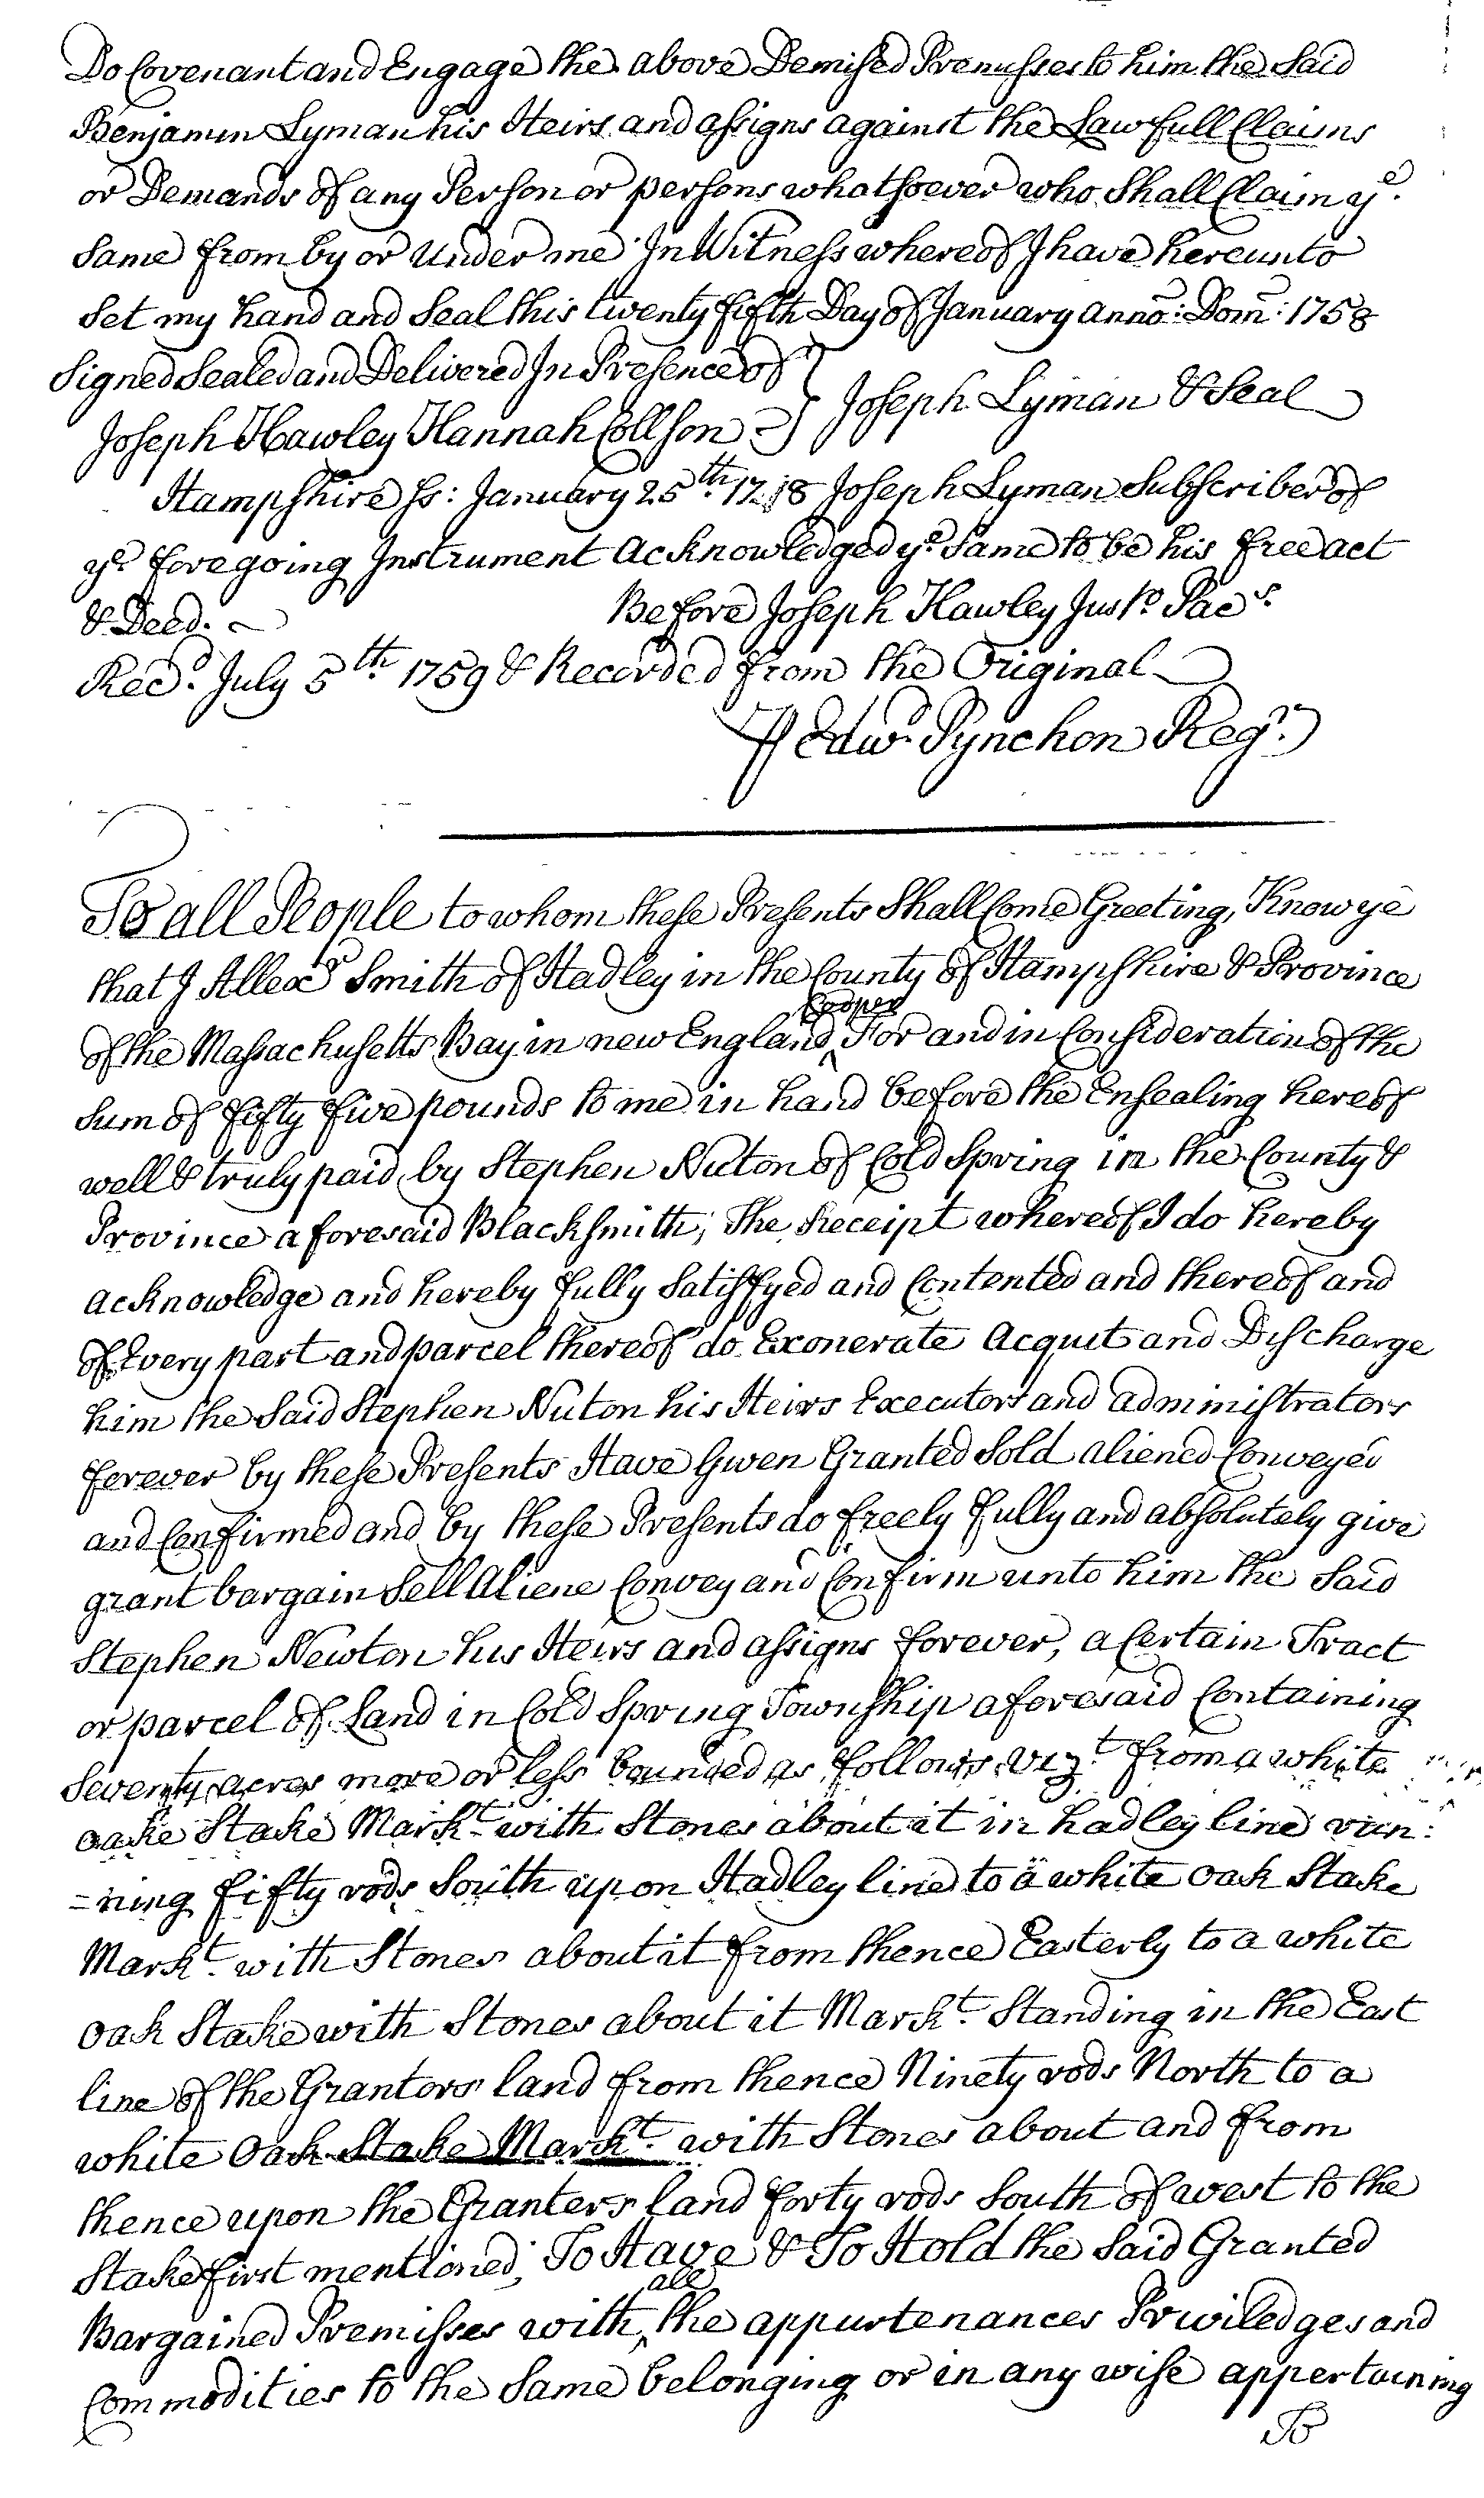 Do Covenant and Engage the above Demised Premisses to him the Said
Benjamin Lyman his Heirs and assigns against the Lawfull Claims
or Demands of any Person or persons whatsoever who Shall Claim yᵉ.
Same from by or Under me In Witness whereof I have hereunto
Set my hand and Seal this twenty fifth Day of January anno: Dom: 1758
Signed Sealed and Delivered In Presence of } Joseph Lyman & Seal
Joseph Hawley Hannah Collson }
Hampshire ss: January 25th. 1758 Joseph Lyman Subscriber of
yᵉ foregoing Instrument Acknowledged yᵉ Same to be his free act
& Deed. Before Joseph Hawley Justo. Pacs.
Recd. July 5th. 1759 & Recorded from the Original
℘ Edwd. Pynchon Regr.
To all People to whom these Presents Shall Come Greeting, Know ye
that I Allexdr Smith of Hadley in the County of Hampshire & Province
of the Massachusetts Bay in new England ^Cooper For and in Consideration of the
Sum of fifty five pounds to me in hand before the Ensealing hereof
well & truly paid by Stephen Nuton of Cold Spring in the County &
Province aforesaid Blacksmith; The Receipt whereof I do hereby
acknowledge and hereby fully Satisfyed and Contented and thereof and
of Every part and parcel thereof do Exonerate Acquit and Discharge
him the Said Stephen Nuton his Heirs Executors and administrators
forever by these Presents Have Given Granted Sold aliened Conveyed
and Confirmed and by these Presents do freely fully and absolutely give
grant bargain Sell Aliene Convey and Confirm unto him the Said
Stephen Newton his Heirs and assigns forever, a Certain Tract
or parcel of Land in Cold Spring Township aforesaid Containing
Seventy acres more or less bounded as follows vizt from a white
oake Stake Markt. with Stones about it in hadley line run:
=ning fifty rods South upon Hadley line to a white oak Stake
Markt. with Stones about it from thence Easterly to a white
oak Stake with Stones about it Markt. Standing in the East
line of the Grantors land from thence Ninety rods North to a
white Oak Stake Markt. with Stones about and from
thence upon the Granters land forty rods South of west to the
Stake first mentioned; To Have & To Hold the Said Granted
Bargained Premisses with ^all the appurtenances Priviledges and
Commodities to the Same belonging or in any wise appertaining
To